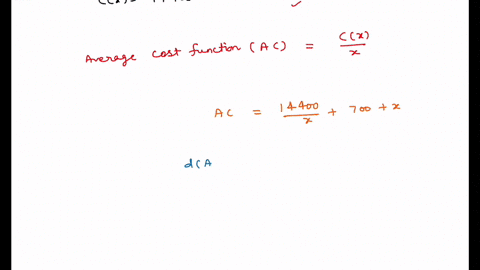 Average cost function (AC) = C(x)/x
AC = 14400/x + 700 + x
d(A